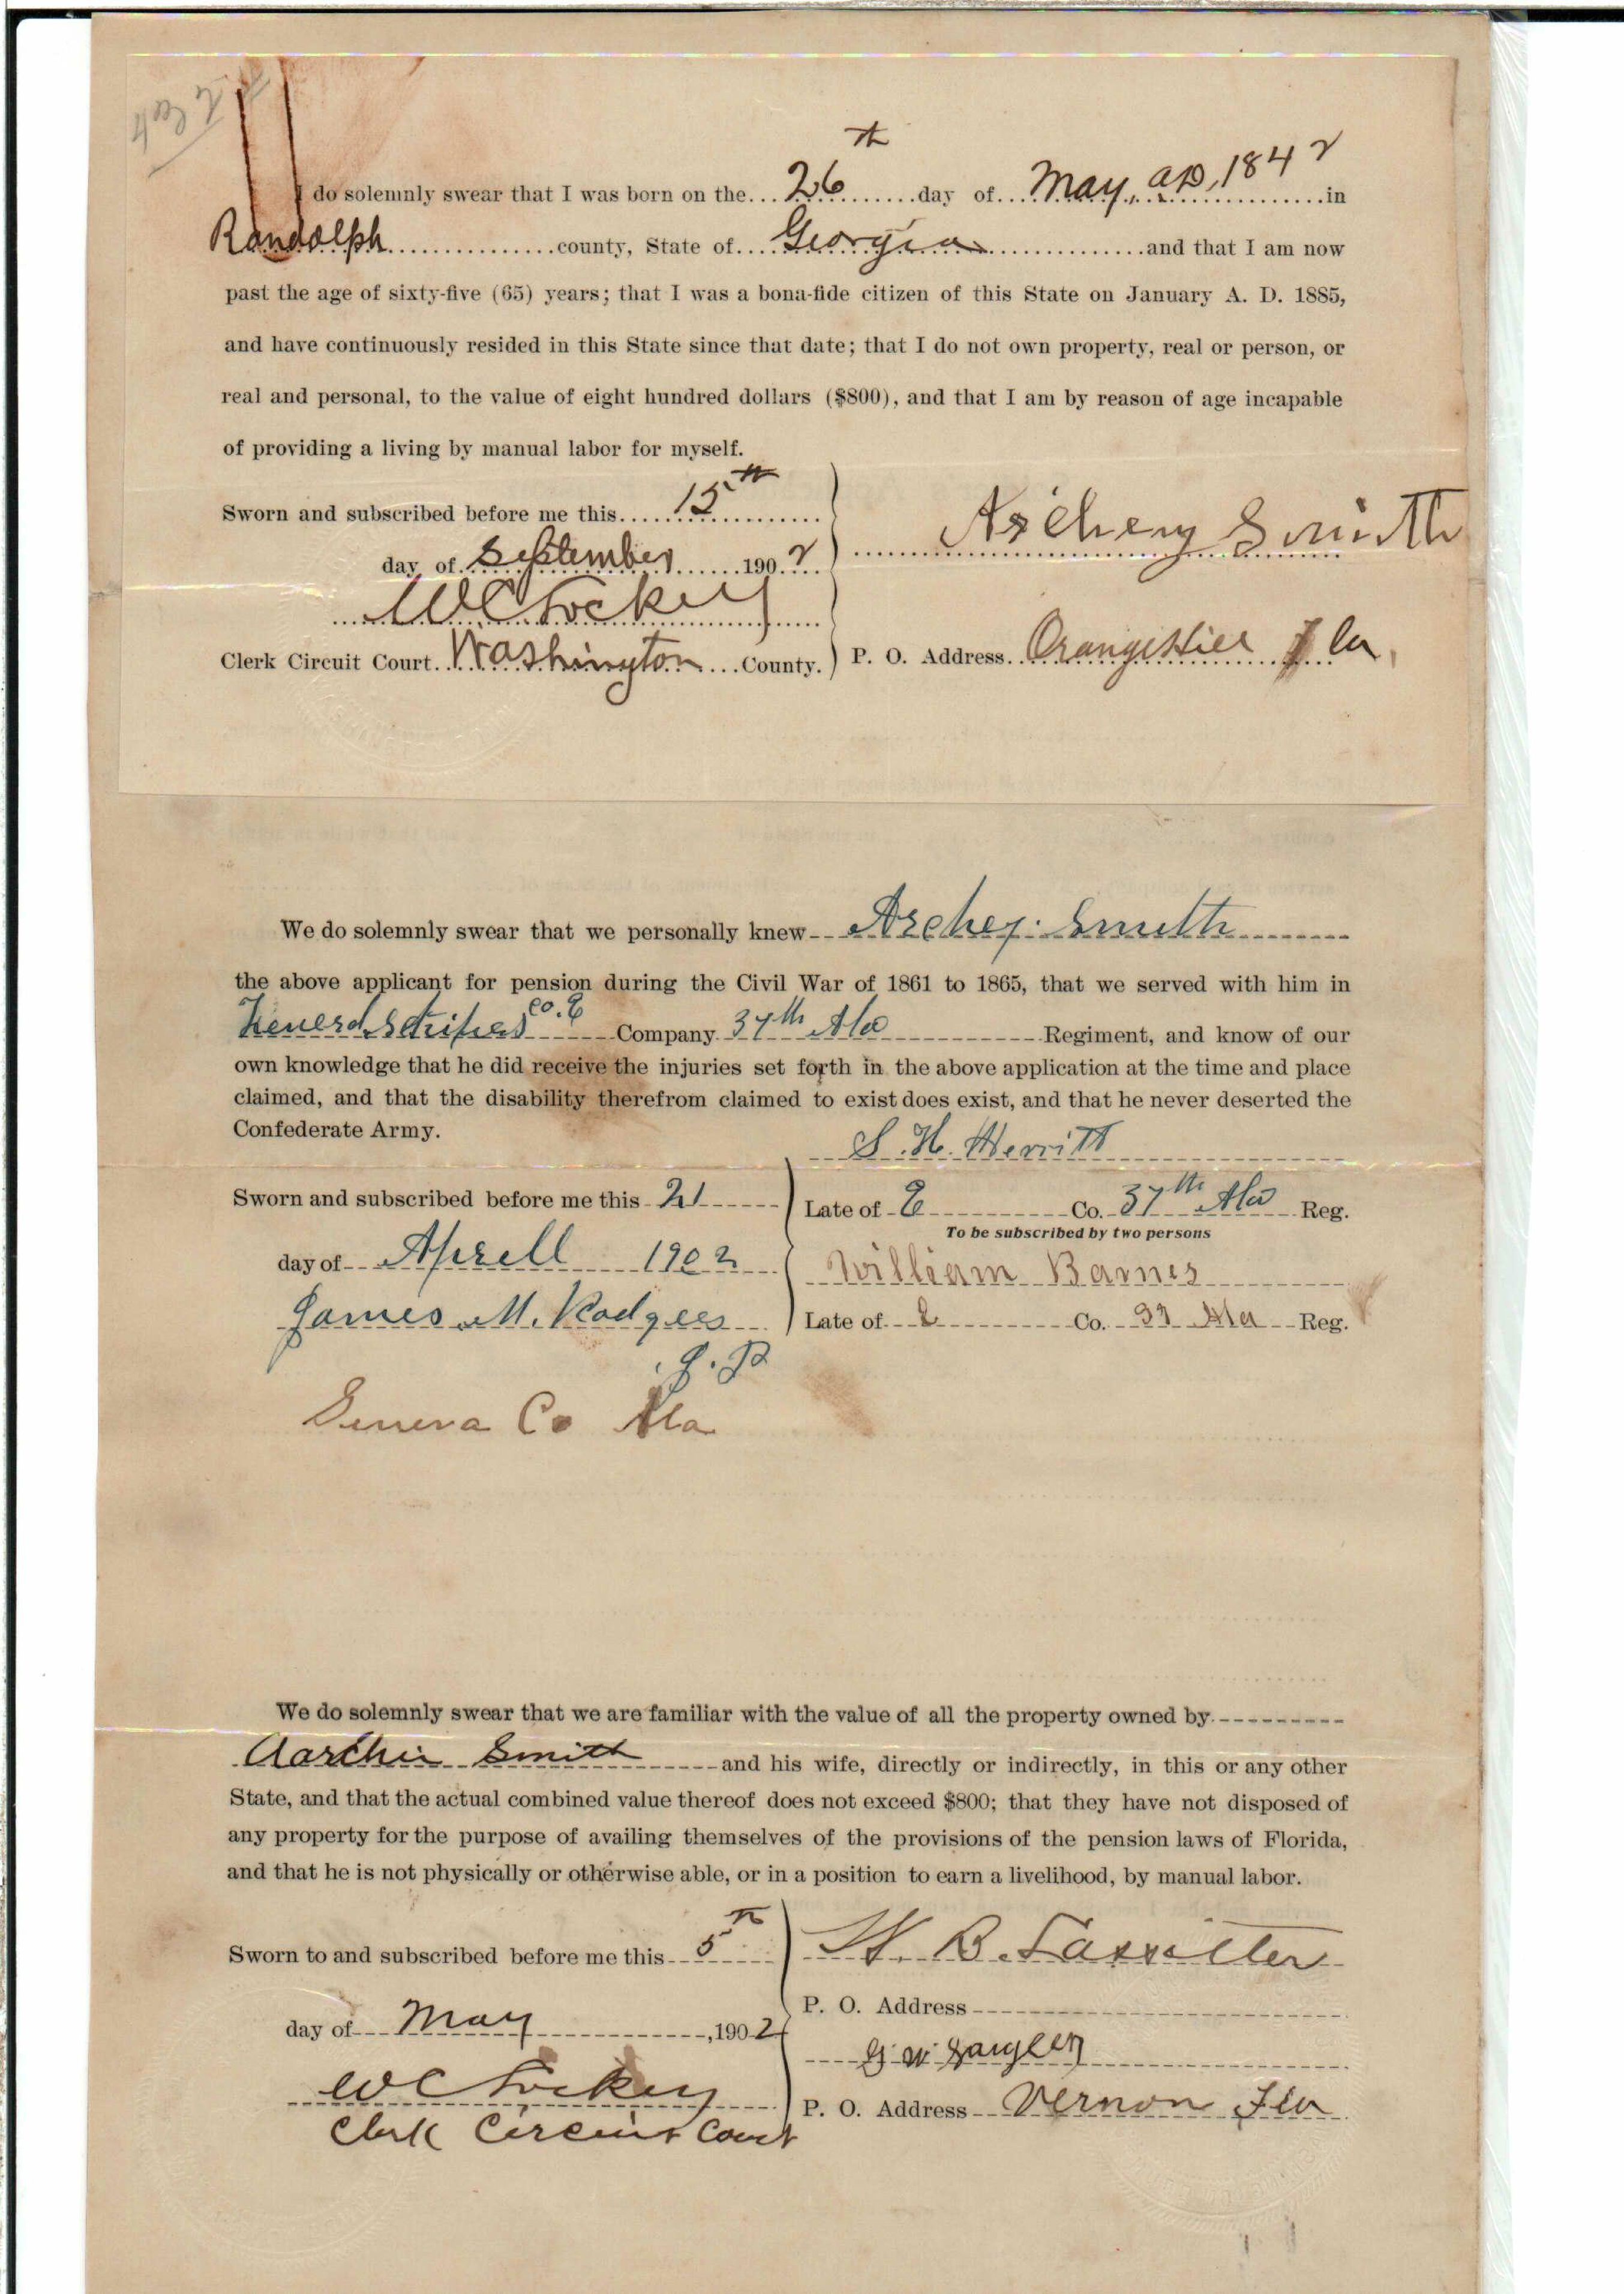 th
I do solemnly swear that I was born on the...26.......day of....May, AD, 1842.......in
Randolph...............county, State of....Georgia...............and that I am now
past the age of sixty-five (65) years; that I was a bona-fide citizen of this State on January A. D. 1885,
and have continuously resided in this State since that date; that I do not own property, real or person, or
real and personal, to the value of eight hundred dollars ($800), and that I am by reason of age incapable
of providing a living by manual labor for myself.
Sworn and subscribed before me this.....15th
day of September.......1902
Archey Smith
W C Lockey
Clerk Circuit Court..Washington...County.
P. O. Address..Orange Hill Fla,
We do solemnly swear that we personally knew Archey Smith
the above applicant for pension during the Civil War of 1861 to 1865, that we served with him in
co. E
Company 37th Ala Regiment, and know of our
own knowledge that he did receive the injuries set forth in the above application at the time and place
claimed, and that the disability therefrom claimed to exist does exist, and that he never deserted the
Confederate Army.
S. H. Merritt
Sworn and subscribed before me this 21
Late of E Co. 37th Ala Reg.
To be subscribed by two persons
day of Aprell 1902
William Barnes
James M. Rodgers
Late of E Co. Ala Reg.
J. P
Geneva Co Ala
We do solemnly swear that we are familiar with the value of all the property owned by
Aarchie Smith and his wife, directly or indirectly, in this or any other
State, and that the actual combined value thereof does not exceed $800; that they have not disposed of
any property for the purpose of availing themselves of the provisions of the pension laws of Florida,
and that he is not physically or otherwise able, or in a position to earn a livelihood, by manual labor.
Sworn to and subscribed before me this 5th
W. B. Lassitter
P. O. Address
day of May ,1902
G W
W C Lockey
P. O. Address Vernon Fla
Clerk Circuit Court